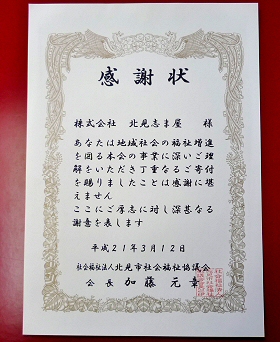 感謝状
株式会社 北見志ま屋 様
あなたは地域社会の福祉増進
を図る本会の事業に深いご理
解をいただき丁重なるご寄付
を賜りましたことは感謝に堪
えません
ここにご厚志に対し深甚なる
謝意を表します
平成21年3月12日
社会福祉法人北見市社会福祉協議会
会長 加藤元章